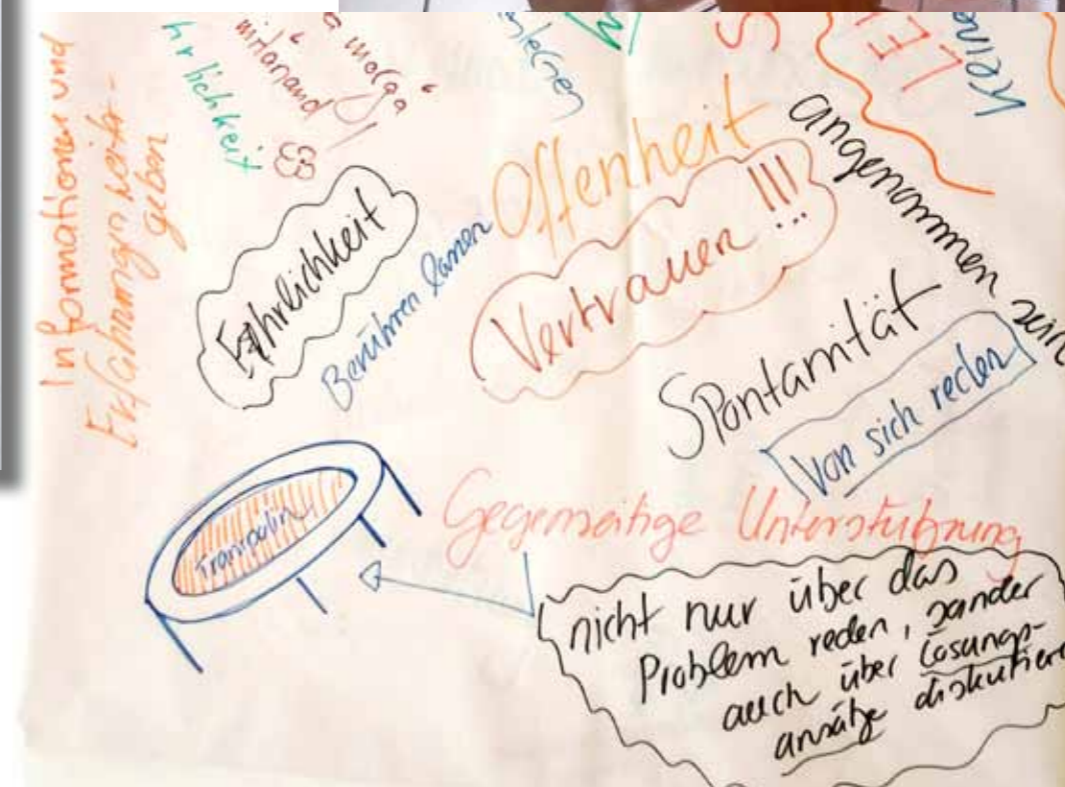 Informationen und
Erfahrungen weiter-
geben
hrlichkeit
a morga
mitanand!
Offenheit
Vertrauen!!!
Ehrlichkeit
Berühren lassen
angenommen sein
Spontanität
Von sich reden
Trampolin
Gegenseitige Unterstützung
nicht nur über das
Problem reden, sonder
auch über Lösungs-
ansätze diskutiere